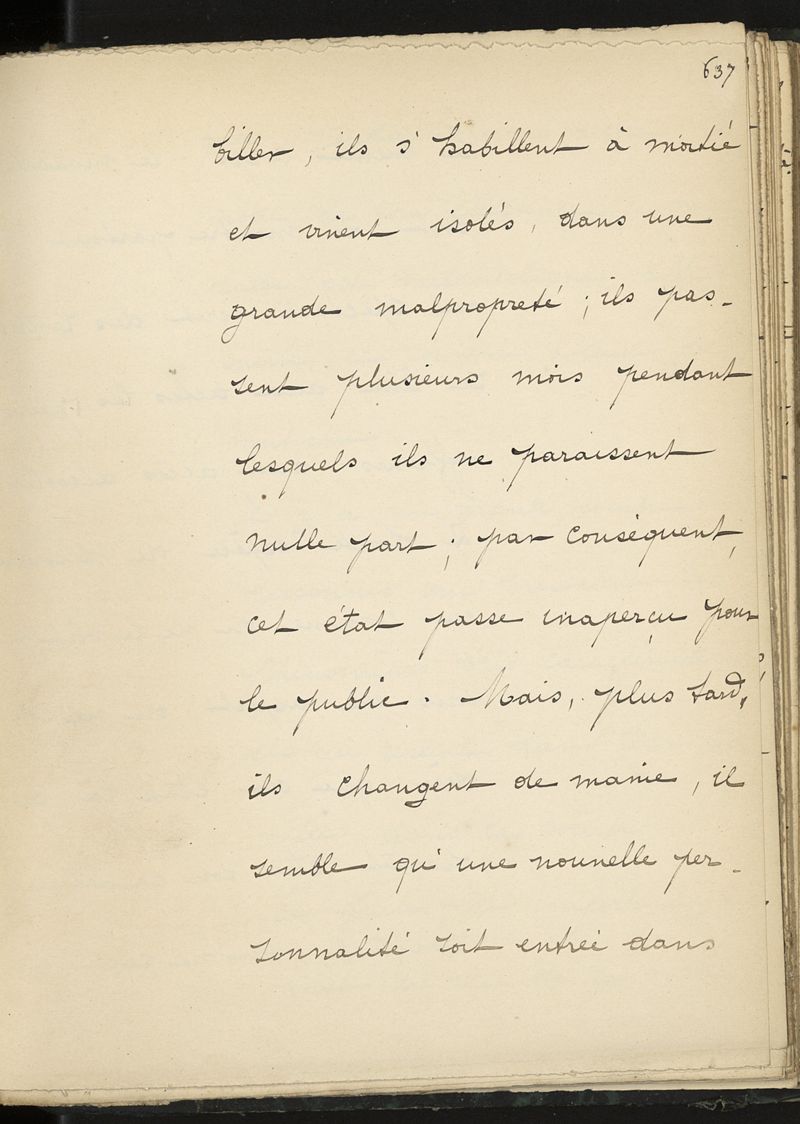 637
biller, ils s'habillent à moitié
et vivent isolés, dans une
grande malpropreté ; ils pas-
sent plusieurs mois pendant
lesquels ils ne paraissent
nulle part ; par conséquent,
cet état passe inaperçu pour
le public. Mais, plus tard,
ils changent de manie, il
semble qu'une nouvelle per-
sonnalité soit entrée dans